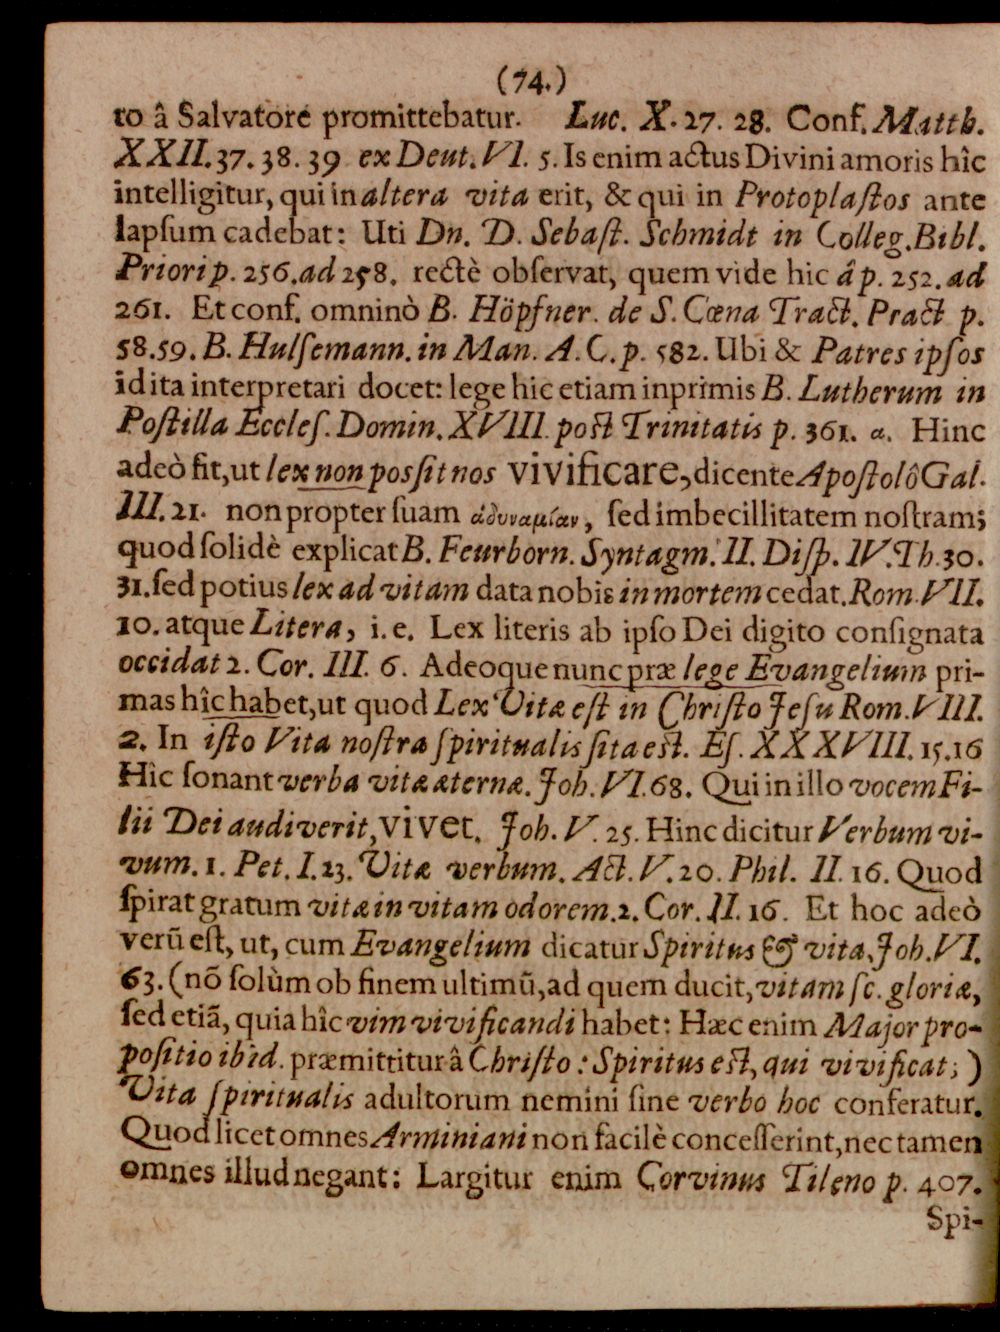 (74.)
to â Salvatore promittebatur. Luc. X. 27. 28. Conf. Matth.
XXII. 37. 38. 39 ex Deut. VI. 5. Is enim actus Divini amoris hîc
intelligitur, qui in altera vita erit, & qui in Protoplaſtos ante
lapſum cadebat: Uti Dn. D. Sebaſt. Schmidt in Colleg. Bibl.
Priori p. 256. ad 258. rectè obſervat, quem vide hic â p. 252. ad
261. Et conf. omninò B. Höpfner. de S. Cœna Tract. Pract p.
58. 59. B. Hulſemann. in Man. A. C. p. 582. Ubi & Patres ipſos
id ita interpretari docet: lege hic etiam inprimis B. Lutherum in
Poſtilla Eccleſ. Domin. XVIII. poſt Trinitatis p. 361. a. Hinc
adeò fit, ut lex non posſit nos vivificare, dicente Apoſtolô Gal.
III. 21. non propter ſuam ἀδυναμίαν, ſed imbecillitatem noſtram;
quod ſolidè explicat B. Feurborn. Syntagm. II. Diſp. IV. Th. 30.
31. ſed potius lex ad vitam data nobis in mortem cedat. Rom. VII.
10. atque Litera, i. e. Lex literis ab ipſo Dei digito conſignata
occidat 2. Cor. III. 6. Adeoque nunc præ lege Evangelium pri-
mas hîc habet, ut quod Lex Vitæ eſt in Chriſto Jeſu Rom. VIII.
2. In iſto Vita noſtra ſpiritualis ſita eſt. Eſ. XXXVIII. 15. 16
Hîc ſonant verba vitæ æternæ. Joh. VI. 68. Qui in illo vocem Fi-
lii Dei audiverit, vivet. Joh. V. 25. Hinc dicitur Verbum vi-
vum. 1. Pet. I. 23. Vitæ verbum. Act. V. 20. Phil. II. 16. Quod
ſpirat gratum vitæ in vitam odorem. 2. Cor. II. 16. Et hoc adeò
verũ eſt, ut, cum Evangelium dicatur Spiritus & vita, Joh. VI.
63. (nõ ſolùm ob finem ultimũ, ad quem ducit, vitam ſc. gloriæ,
ſed etiã, quia hîc vim vivificandi habet: Hæc enim Major pro-
poſitio ibid. præmittitur â Chriſto: Spiritus eſt, qui vivificat; )
Vita ſpiritualis adultorum nemini ſine verbo hoc conferatur.
Quod licet omnes Arminiani non facilè conceſſerint, nec tamen
omnes illud negant: Largitur enim Corvinus Tileno p. 407.
Spi-